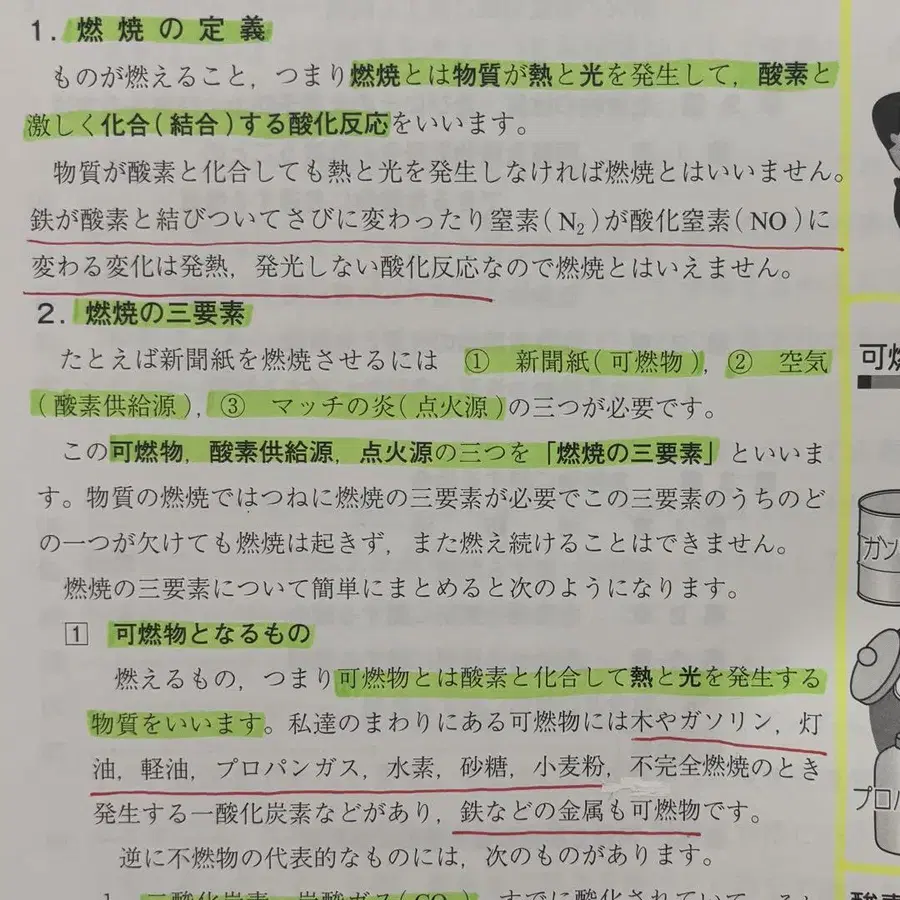 1. 燃焼の定義
ものが燃えること，つまり燃焼とは物質が熱と光を発生して，酸素と
激しく化合(結合)する酸化反応をいいます。
物質が酸素と化合しても熱と光を発生しなければ燃焼とはいいません。
鉄が酸素と結びついてさびに変わったり窒素(N₂)が酸化窒素(NO)に
変わる変化は発熱，発光しない酸化反応なので燃焼とはいえません。
2. 燃焼の三要素
たとえば新聞紙を燃焼させるには ① 新聞紙(可燃物)，② 空気
(酸素供給源)，③ マッチの炎(点火源)の三つが必要です。
この可燃物，酸素供給源，点火源の三つを「燃焼の三要素」といいま
す。物質の燃焼ではつねに燃焼の三要素が必要でこの三要素のうちのど
の一つが欠けても燃焼は起きず，また燃え続けることはできません。
燃焼の三要素について簡単にまとめると次のようになります。
1 可燃物となるもの
燃えるもの，つまり可燃物とは酸素と化合して熱と光を発生する
物質をいいます。私達のまわりにある可燃物には木やガソリン，灯
油，軽油，プロパンガス，水素，砂糖，小麦粉，不完全燃焼のとき
発生する一酸化炭素などがあり，鉄などの金属も可燃物です。
逆に不燃物の代表的なものには，次のものがあります。
可燃
ガソ
プロパ